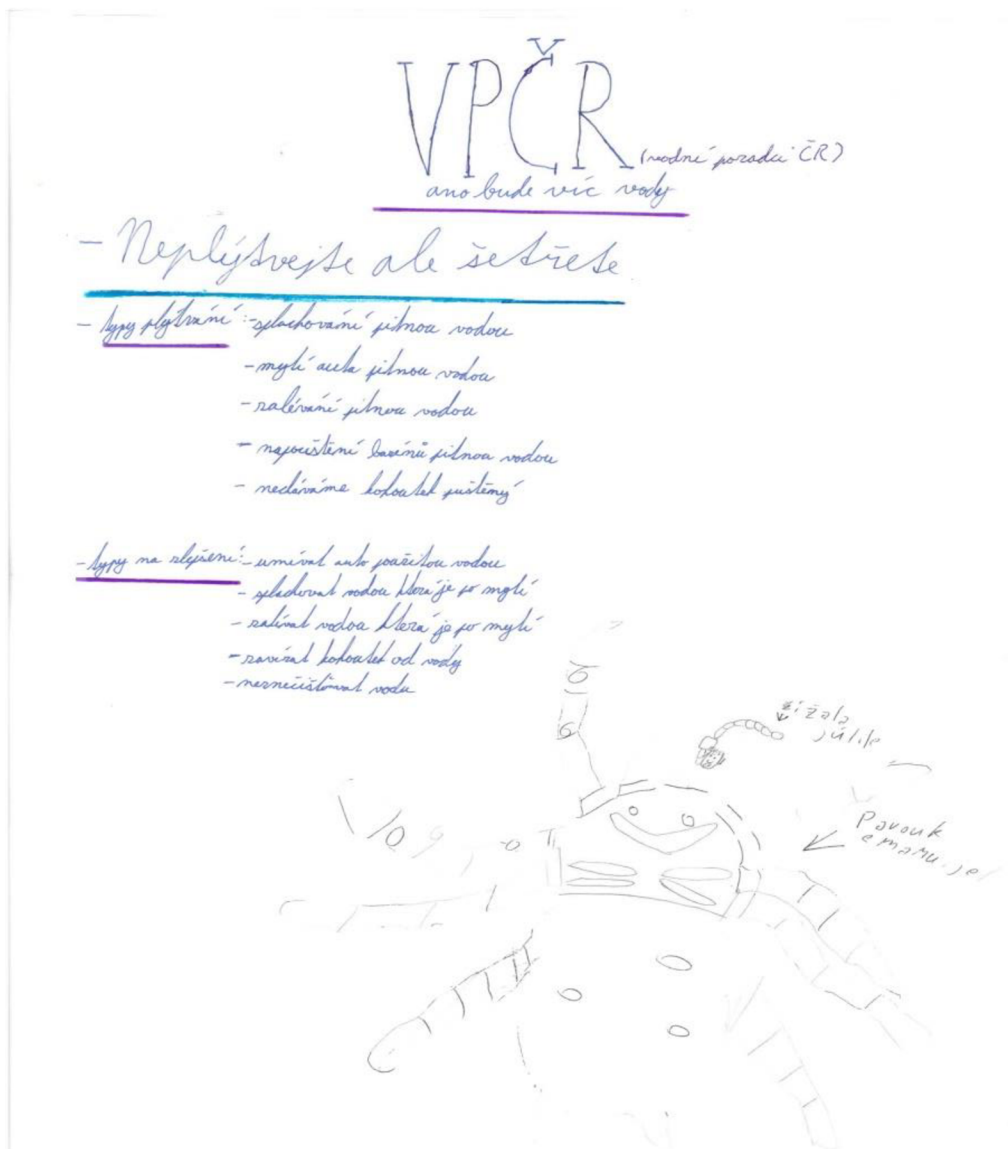 VPČR (vodní poradci ČR)
ano bude víc vody
- Neplýtvejte ale šetřete
- typy plýtvání: - splachování pitnou vodou
- mytí auta pitnou vodou
- zalévání pitnou vodou
- napouštění bazénů pitnou vodou
- nedáváme kohoutek puštěný
- typy na zlepšení: - umívat auto použitou vodou
- splachovat vodou která je po mytí
- zalívat vodou která je po mytí
- zavírat kohoutek od vody
- neznečišťovat vodu
žížala
júlije
Pavouk